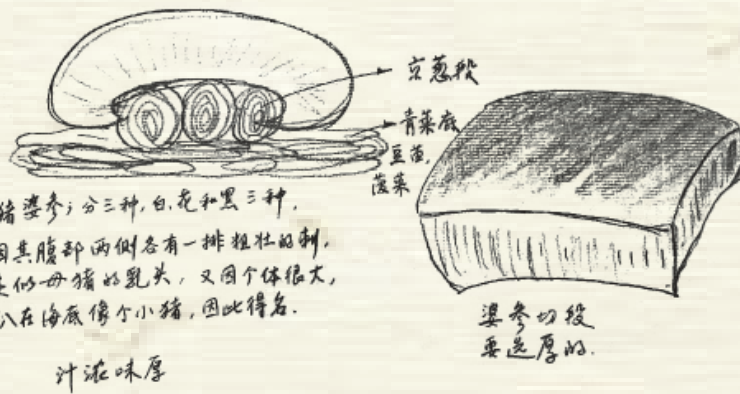 京葱段
青菜底
豆苗,
菠菜
猪婆参;分三种,白、花和黑三种,
因其腹部两侧各有一排粗壮的刺,
似母猪的乳头,又因个体很大,
在海底像个小猪,因此得名.
汁浓味厚
婆参切段
要选厚的.